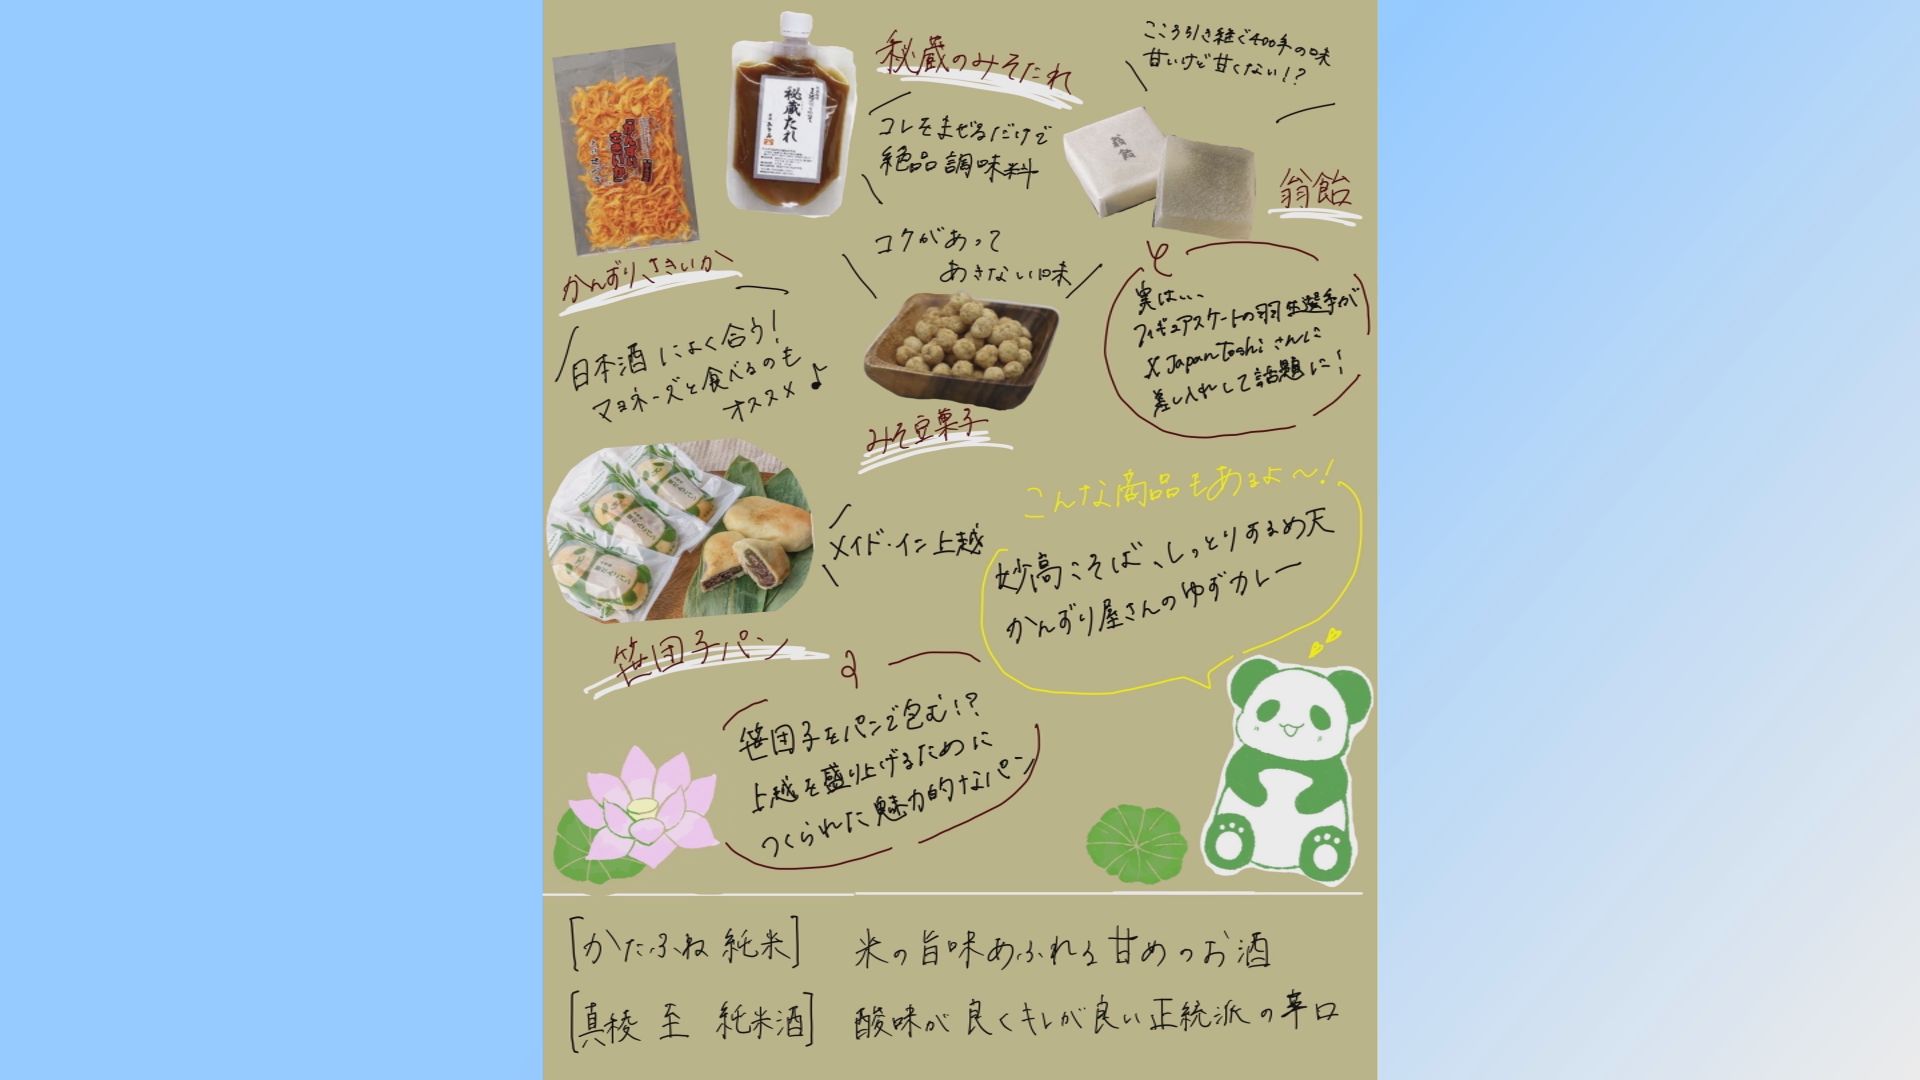 秘蔵のみそたれ
コレをまぜるだけで
絶品調味料
秘蔵たれ
こころ引き継ぐ400年の味
甘いけど甘くない!?
翁飴
翁飴
実は…
フィギュアスケートの羽生選手が
X Japan Toshiさんに
差し入れして話題に!
かんずり
さきいか
かんずりさきいか
日本酒によく合う!
マヨネーズと食べるのも
オススメ♪
コクがあって
あきない味
みそ豆菓子
メイド・イン上越
笹団子パン
笹団子をパンで包む!?
上越を盛り上げるために
つくられた魅力的なパン
こんな商品もあるよ〜!
妙高こそば、しっとりするめ天
かんずり屋さんのゆずカレー
[かたふね 純米] 米の旨味あふれる甘めのお酒
[真稜 至 純米酒] 酸味が良くキレが良い正統派の辛口